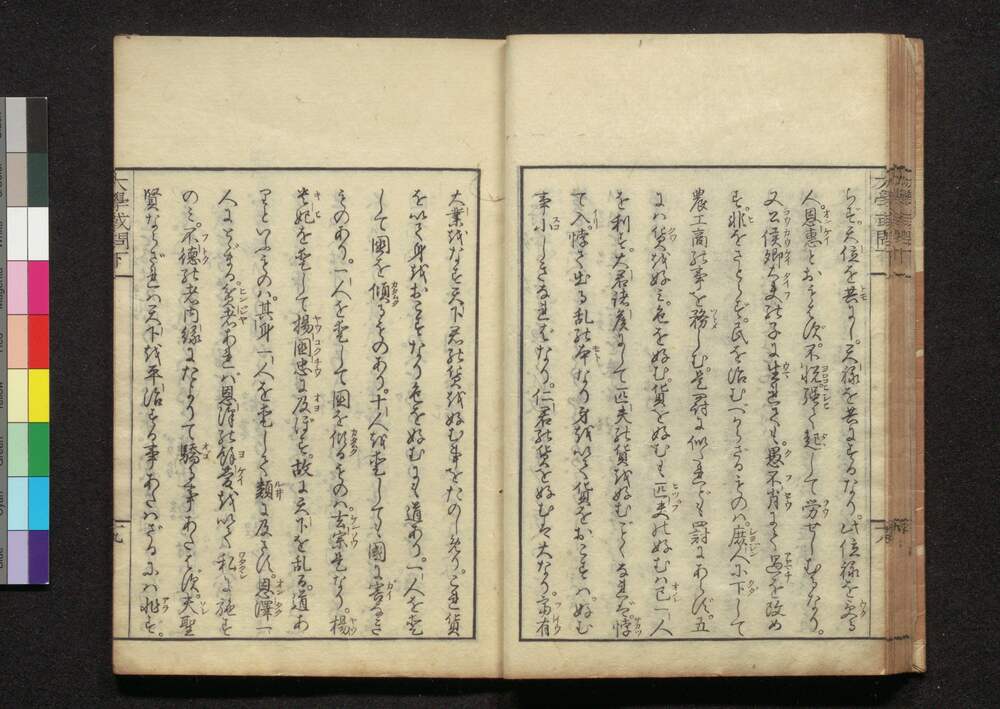 らず天位を共にし天禄を共にするなり。此位禄を受る
人恩恵とおもはず。不悦強て起して労せしむるなり。
又公侯卿大夫の子に生れても。愚不肖にて過を改め
ず。非をさとらず。民を治むべからざるものは。庶人に下して
農工商の事を務しむ。是罰に似れども罰にあらず。五
には貨を好み色を好む。貨を好むも匹夫の好むは己一人
を利す。大君諸侯にして匹夫の貨を好むごとくなれば。悖
て入。悖て出る乱の本なり。身を以て貨をおこすは。好む
事小しきなればなり。仁君の貨を好むは大なり。富有
大業をなす。天下の君の貨を好む事をたのしめり。これ貨
を以て身をおこすなり。色を好むにも道あり。一人を愛
して国を傾るものあり。十人を愛しても国に害なき
ものあり。一人を愛して国を傾るものは玄宗是なり。楊
貴妃を愛して楊國忠に及ぼす。故に天下を乱る。道あ
りといふものは。其身一人を愛して類に及さず。恩澤一
人にとどまる。貧者あれば恩澤の餘慶を以て私に施す
のみ。不徳の者内縁によりて驕る事あたはず。夫聖
賢ならざれば天下を平治する事あたはざるには非ず。
大學或問 下